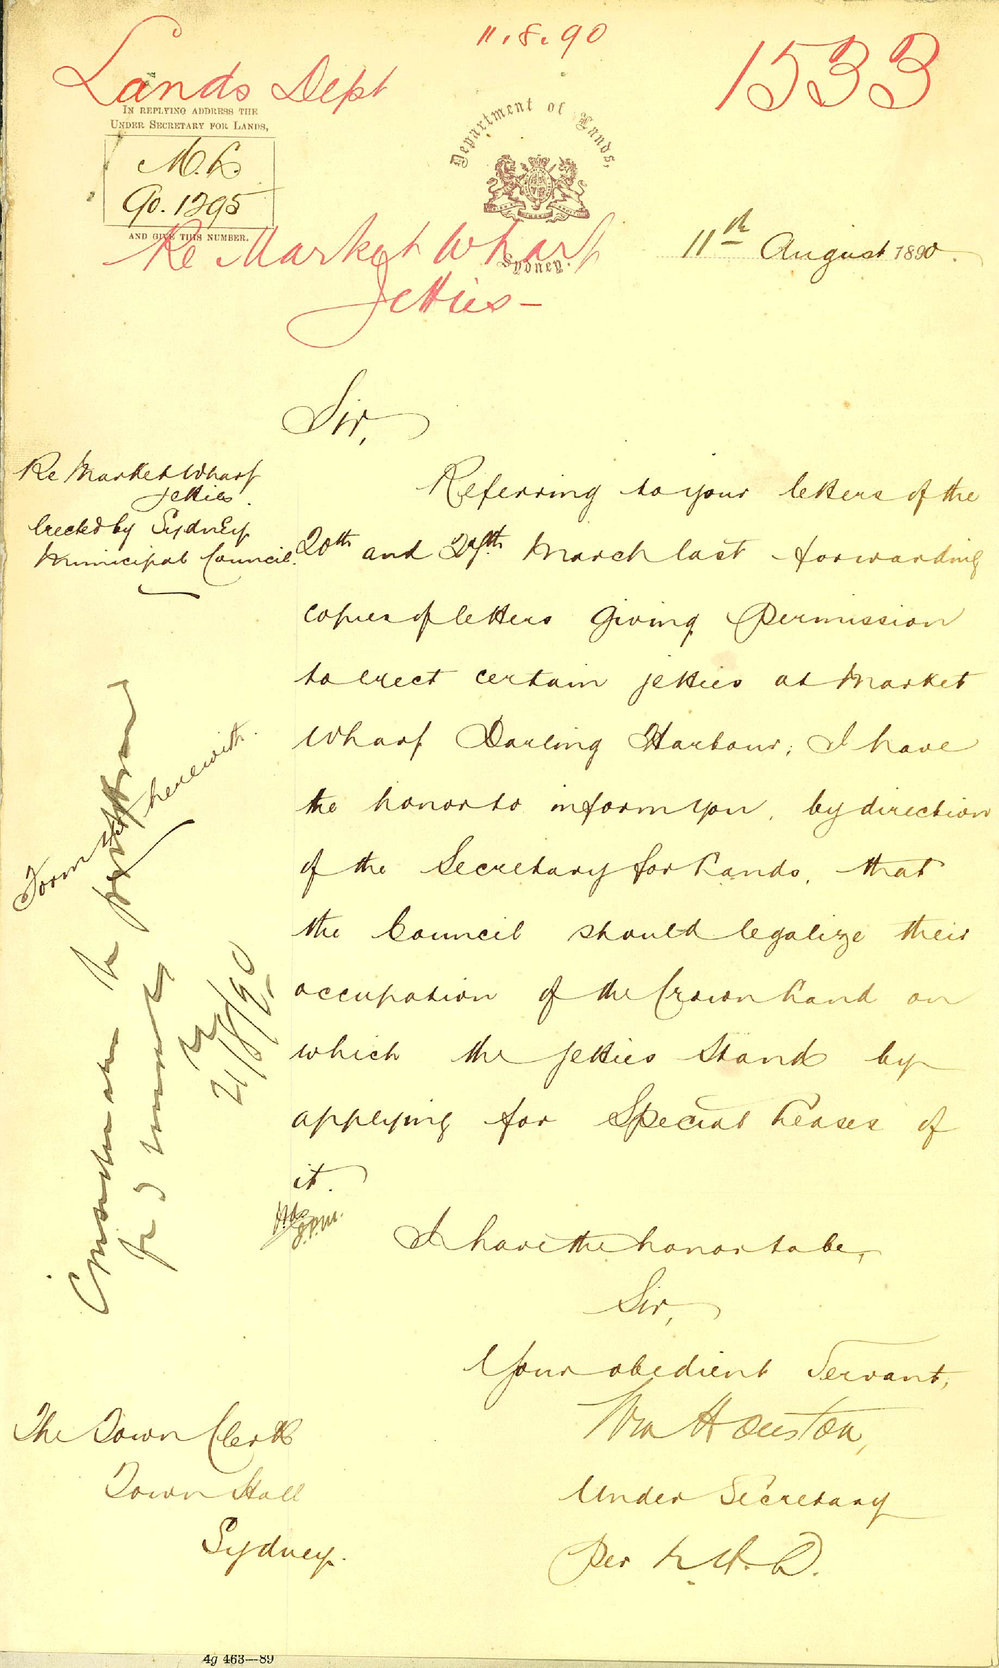 11.8.90
1533
Lands Dept
IN REPLYING ADDRESS THE
UNDER SECRETARY FOR LANDS,
M.L.
90.1295
AND GIVE THIS NUMBER.
Department of Lands,
Sydney.
Re Market Wharf
Jetties—
11th August 1890.
Sir,
Re Market Wharf
Jetties
Erected by Sydney
Municipal Council.
Referring to your letters of the
20th and 27th March last forwarding
copies of letters giving permission
to erect certain jetties at Market
Wharf Darling Harbour; I have
the honor to inform you, by direction
of the Secretary for Lands, that
the Council should legalize their
occupation of the Crown Land on
which the jetties stand by
applying for Special Leases of
it.
Form herewith.
21/8/90
I have the honor to be,
Sir,
Your obedient Servant,
Wm Houston,
Under Secretary
Per
The Town Clerk
Town Hall
Sydney.
4g 463—89